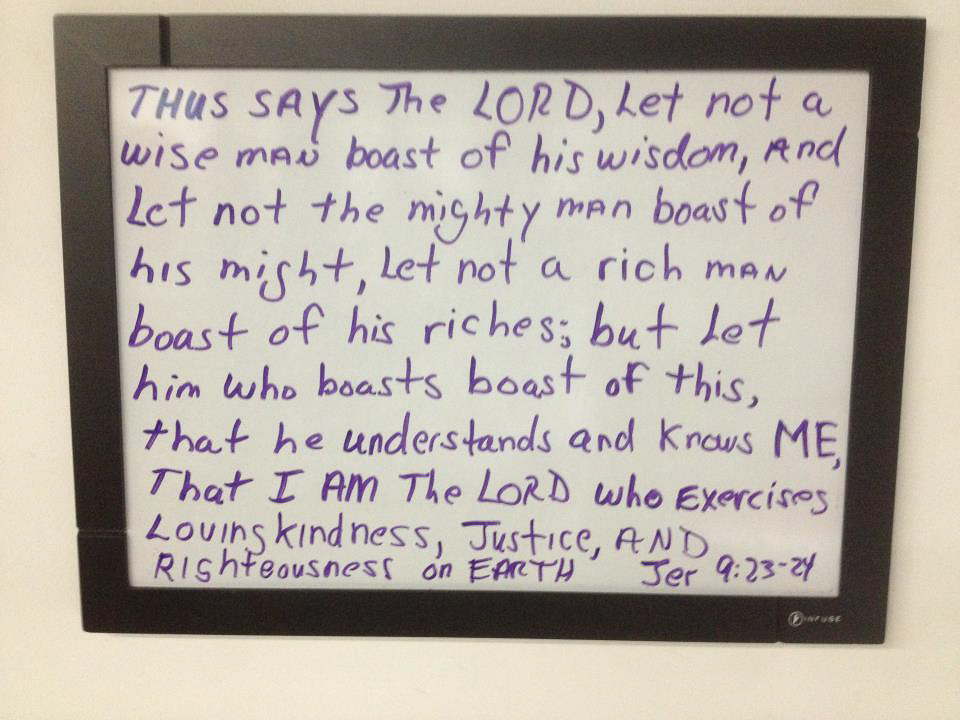 THUS SAYS The LORD, Let not a
wise MAN boast of his wisdom, And
Let not the mighty MAN boast of
his might, Let not a rich MAN
boast of his riches; but Let
him who boasts boast of this,
that he understands and Knows ME,
That I AM The LORD who Exercises
Lovingkindness, Justice, AND
RIGhteousness on EARTH Jer 9:23-24
INFUSE